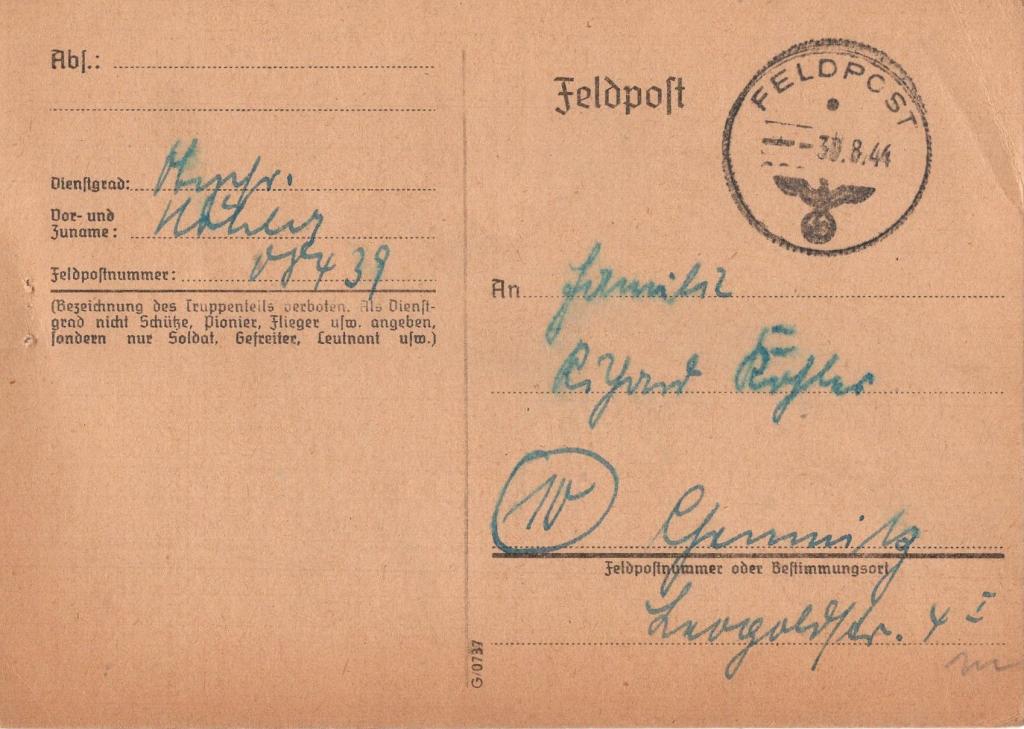 Abs.:
Dienstgrad:
Vor- und
Zuname:
Feldpostnummer: 39
(Bezeichnung des Truppenteils verboten. Als Dienst-
grad nicht Schütze, Pionier, Flieger usw. angeben,
sondern nur Soldat, Gefreiter, Leutnant usw.)
Feldpost
FELDPOST
30.8.44
An Familie
Richard Köhler
10 Chemnitz
Feldpostnummer oder Bestimmungsort
Leopoldstr. 4 I
G/0737